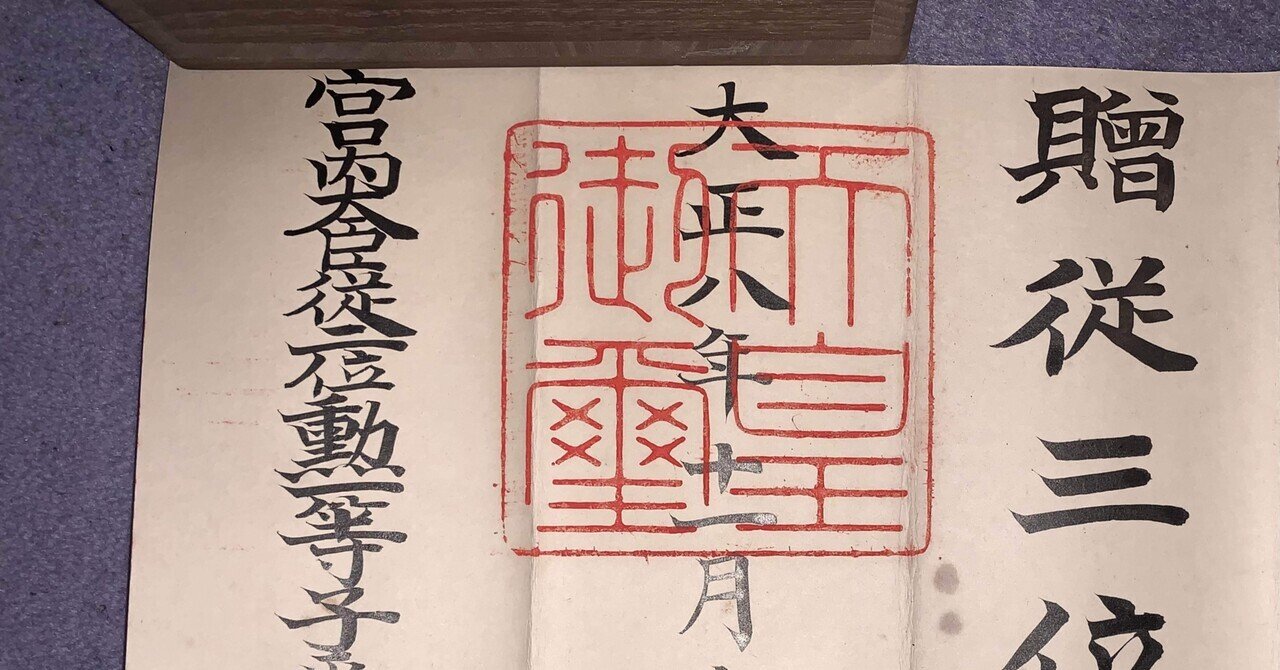 贈従三位
大正八年十一月
宮内大臣従二位勲一等子
天皇御璽